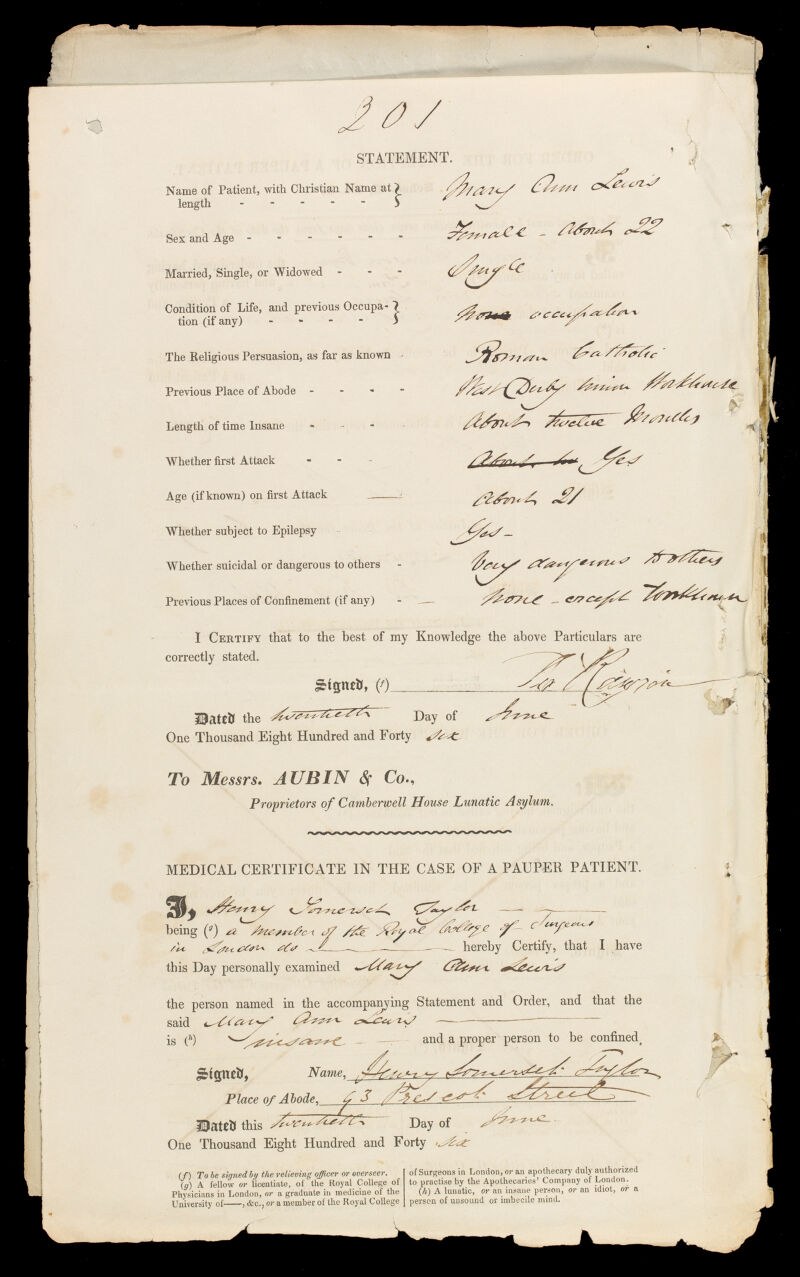 201
STATEMENT.
Name of Patient, with Christian Name at length - - - - - Mary Ann Lewis
Sex and Age - - - - - - Female - About 22
Married, Single, or Widowed - - - Single
Condition of Life, and previous Occupa-
tion (if any) - - - - None occupation
The Religious Persuasion, as far as known - Roman Catholic
Previous Place of Abode - - - - West Derby Union Workhouse
Length of time Insane - - - About twelve Months
Whether first Attack - - - About Yes
Age (if known) on first Attack About 21
Whether subject to Epilepsy - Yes -
Whether suicidal or dangerous to others - Very dangerous to others
Previous Places of Confinement (if any) - - None - except Workhouse
I CERTIFY that to the best of my Knowledge the above Particulars are
correctly stated.
Signed, (f)
Dated the twentieth Day of June
One Thousand Eight Hundred and Forty six
To Messrs. AUBIN & Co.,
Proprietors of Camberwell House Lunatic Asylum.
MEDICAL CERTIFICATE IN THE CASE OF A PAUPER PATIENT.
I, Henry Somerset Taylor
being (g) a member of the Royal College of Surgeons
in London do hereby Certify, that I have
this Day personally examined Mary Ann Lewis
the person named in the accompanying Statement and Order, and that the
said Mary Ann Lewis
is (h) insane and a proper person to be confined.
Signed, Name, Henry Somerset Taylor
Place of Abode, 93 Prescot Street
Dated this twentieth Day of June
One Thousand Eight Hundred and Forty six
(f) To be signed by the relieving officer or overseer.
(g) A fellow or licentiate, of the Royal College of
Physicians in London, or a graduate in medicine of the
University of ——, &c., or a member of the Royal College
of Surgeons in London, or an apothecary duly authorized
to practise by the Apothecaries' Company of London.
(h) A lunatic, or an insane person, or an idiot, or a
person of unsound or imbecile mind.